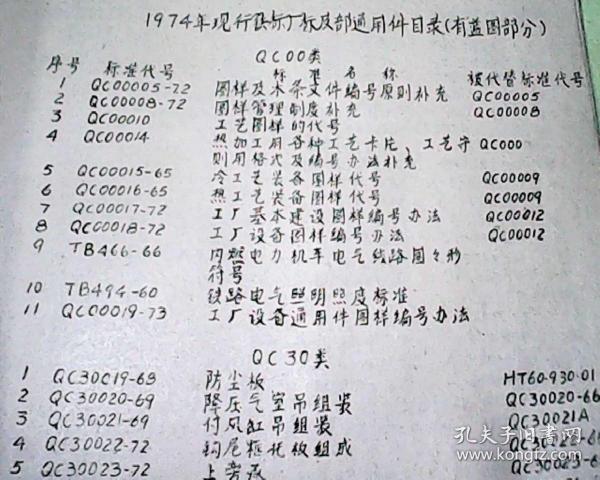 1974年现行铁标厂标及部通用件目录(有蓝图部分)
QC00类
序号 标准代号 标准名称 被代替标准代号
1 QC00005-72 图样及术条文件编号原则补充 QC00005
2 QC00008-72 图样管理制度补充 QC00008
3 QC00010 工艺图样的代号
4 QC00014 热加工用各种工艺卡片、工艺守 QC000
则用格式及编号办法补充
5 QC00015-65 冷工艺装备图样代号 QC00009
6 QC00016-65 热工艺装备图样代号 QC00009
7 QC00017-72 工厂基本建设图样编号办法 QC00012
8 QC00018-72 工厂设备图样编号办法 QC00012
9 TB466-66 内燃电力机车电气线路图今形
符号
10 TB494-60 铁路电气照明照度标准
11 QC00019-73 工厂设备通用件图样编号办法
QC30类
1 QC30019-63 防尘板 HT60-930-01
2 QC30020-69 降压气室吊组装 QC30020-66
3 QC30021-69 付风缸吊组装 QC30021A
4 QC30022-72 钩尾框托板组成 QC30022-6
5 QC30023-72 上旁承 QC30023-6
孔夫子旧书网
www.kongfz.com